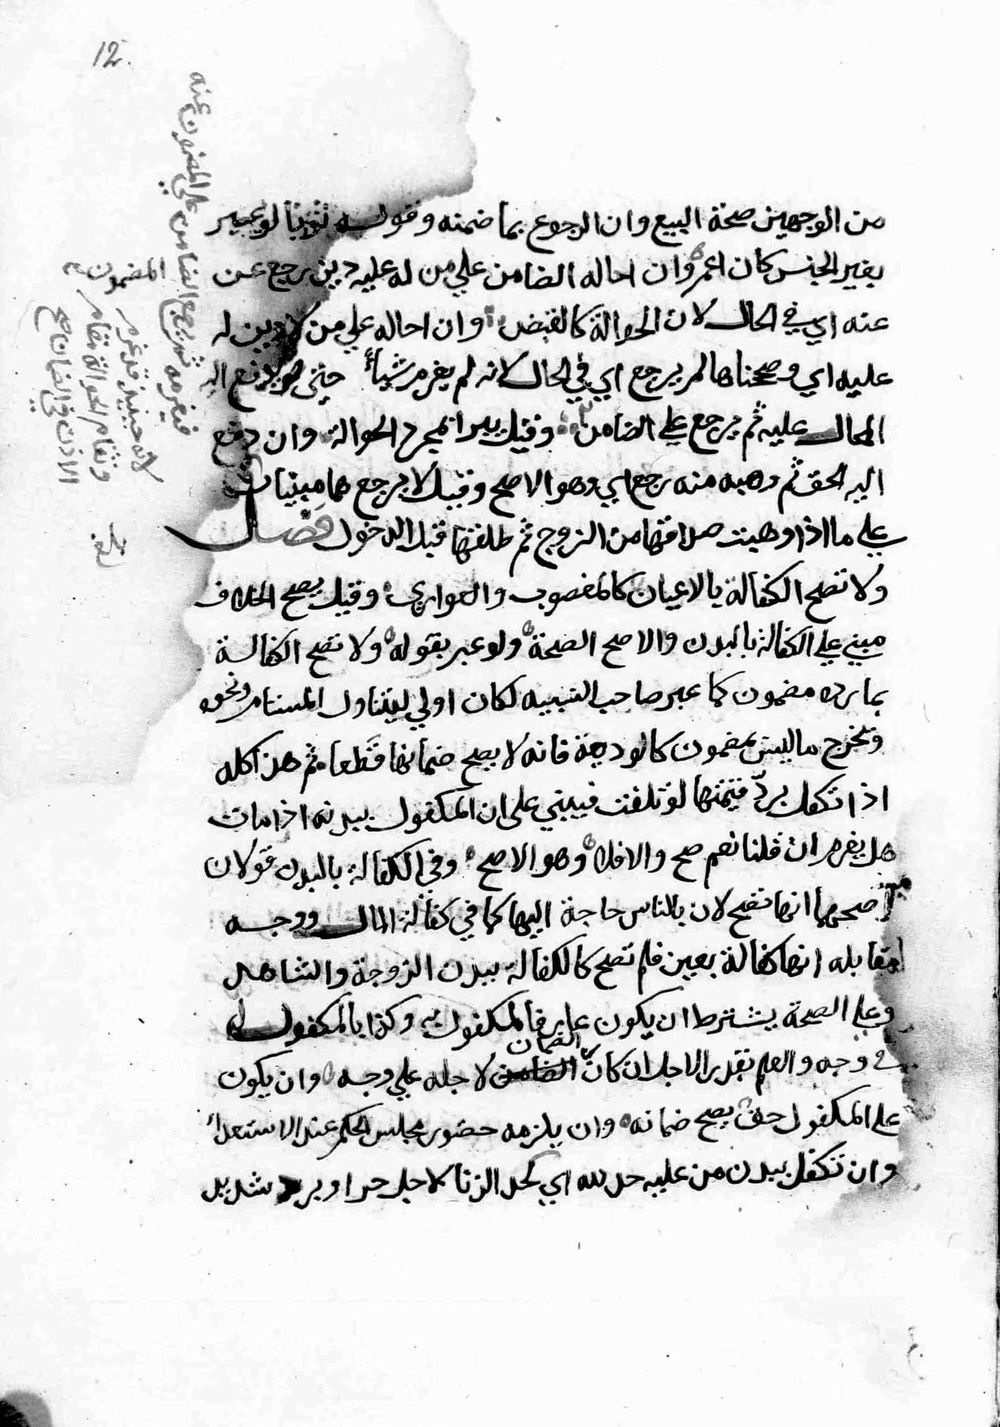 12
من الوجهين صحة البيع وان الرجوع بما ضمنه وقوله ثوبا لو عبر
بغير الجنس كان اعم وان احاله الضامن علي من له عليه دين رجع عن
عنه اي في الحال لان الحوالة كالقبض وان احاله علي من لا دين له
عليه اي وصححناها لم يرجع اي في الحال لانه لم يغرم شيأ حتى لو دفع اله
المحال عليه ثم يرجع علي الضامن وقيل يبرا بمجرد الحوالة وان دفع
اليه الحق ثم وهبه منه رجع اي وهو الاصح وقيل لا يرجع هما مبنيان
علي ما اذا وهبت صداقها من الزوج ثم طلقها قبل الدخول فصل
ولا تصح الكفالة بالاعيان كالمغصوب والعواري وقيل يصح الخلاف
مبني علي الكفالة بالبدن والاصح الصحة ولو عبر بقوله ولا تصح الكفالة
بما يده مضمون كما عبر صاحب التنبيه لكان اولي ليتناول المستام ونحوه
وتخرج ما ليس بمضمون كالوديعة فانه لا يصح ضمانها قطعا ثم هذا كله
اذا تكفل برد قيمتها لو تلفت فيبني على ان المكفول ببدنه اذا مات
هل يغرم ان قلنا نعم صح والا فلا وهو الاصح وفي الكفالة بالبدن قولان
اصحهما انها تصح لان بالناس حاجة اليها كما في كفالة المال ووجه
مقابله انها كفالة بعين فلم تصح كالكفالة ببدن الزوجة والشاهد
وعلي الصحة يشترط ان يكون عارفا بالمكفول به وكذا بالمكفول له
في وجه والعلم بقدر الاجل ان كان الضمان لاجله علي وجه وان يكون
علي المكفول حق يصح ضمانه وان يلزمه حضور مجلس الحكم عند الاستعداء
وان تكفل ببدن من عليه حد لله اي كحد الزنا لاجل حر او برد شديد
فيغرمه ثم يرجع الضامن علي المضمون عنه
المضمون
لانه حينئذ قد غرم
وتقام الحوالة مقام
الاذن في الضمان صح
بلغ